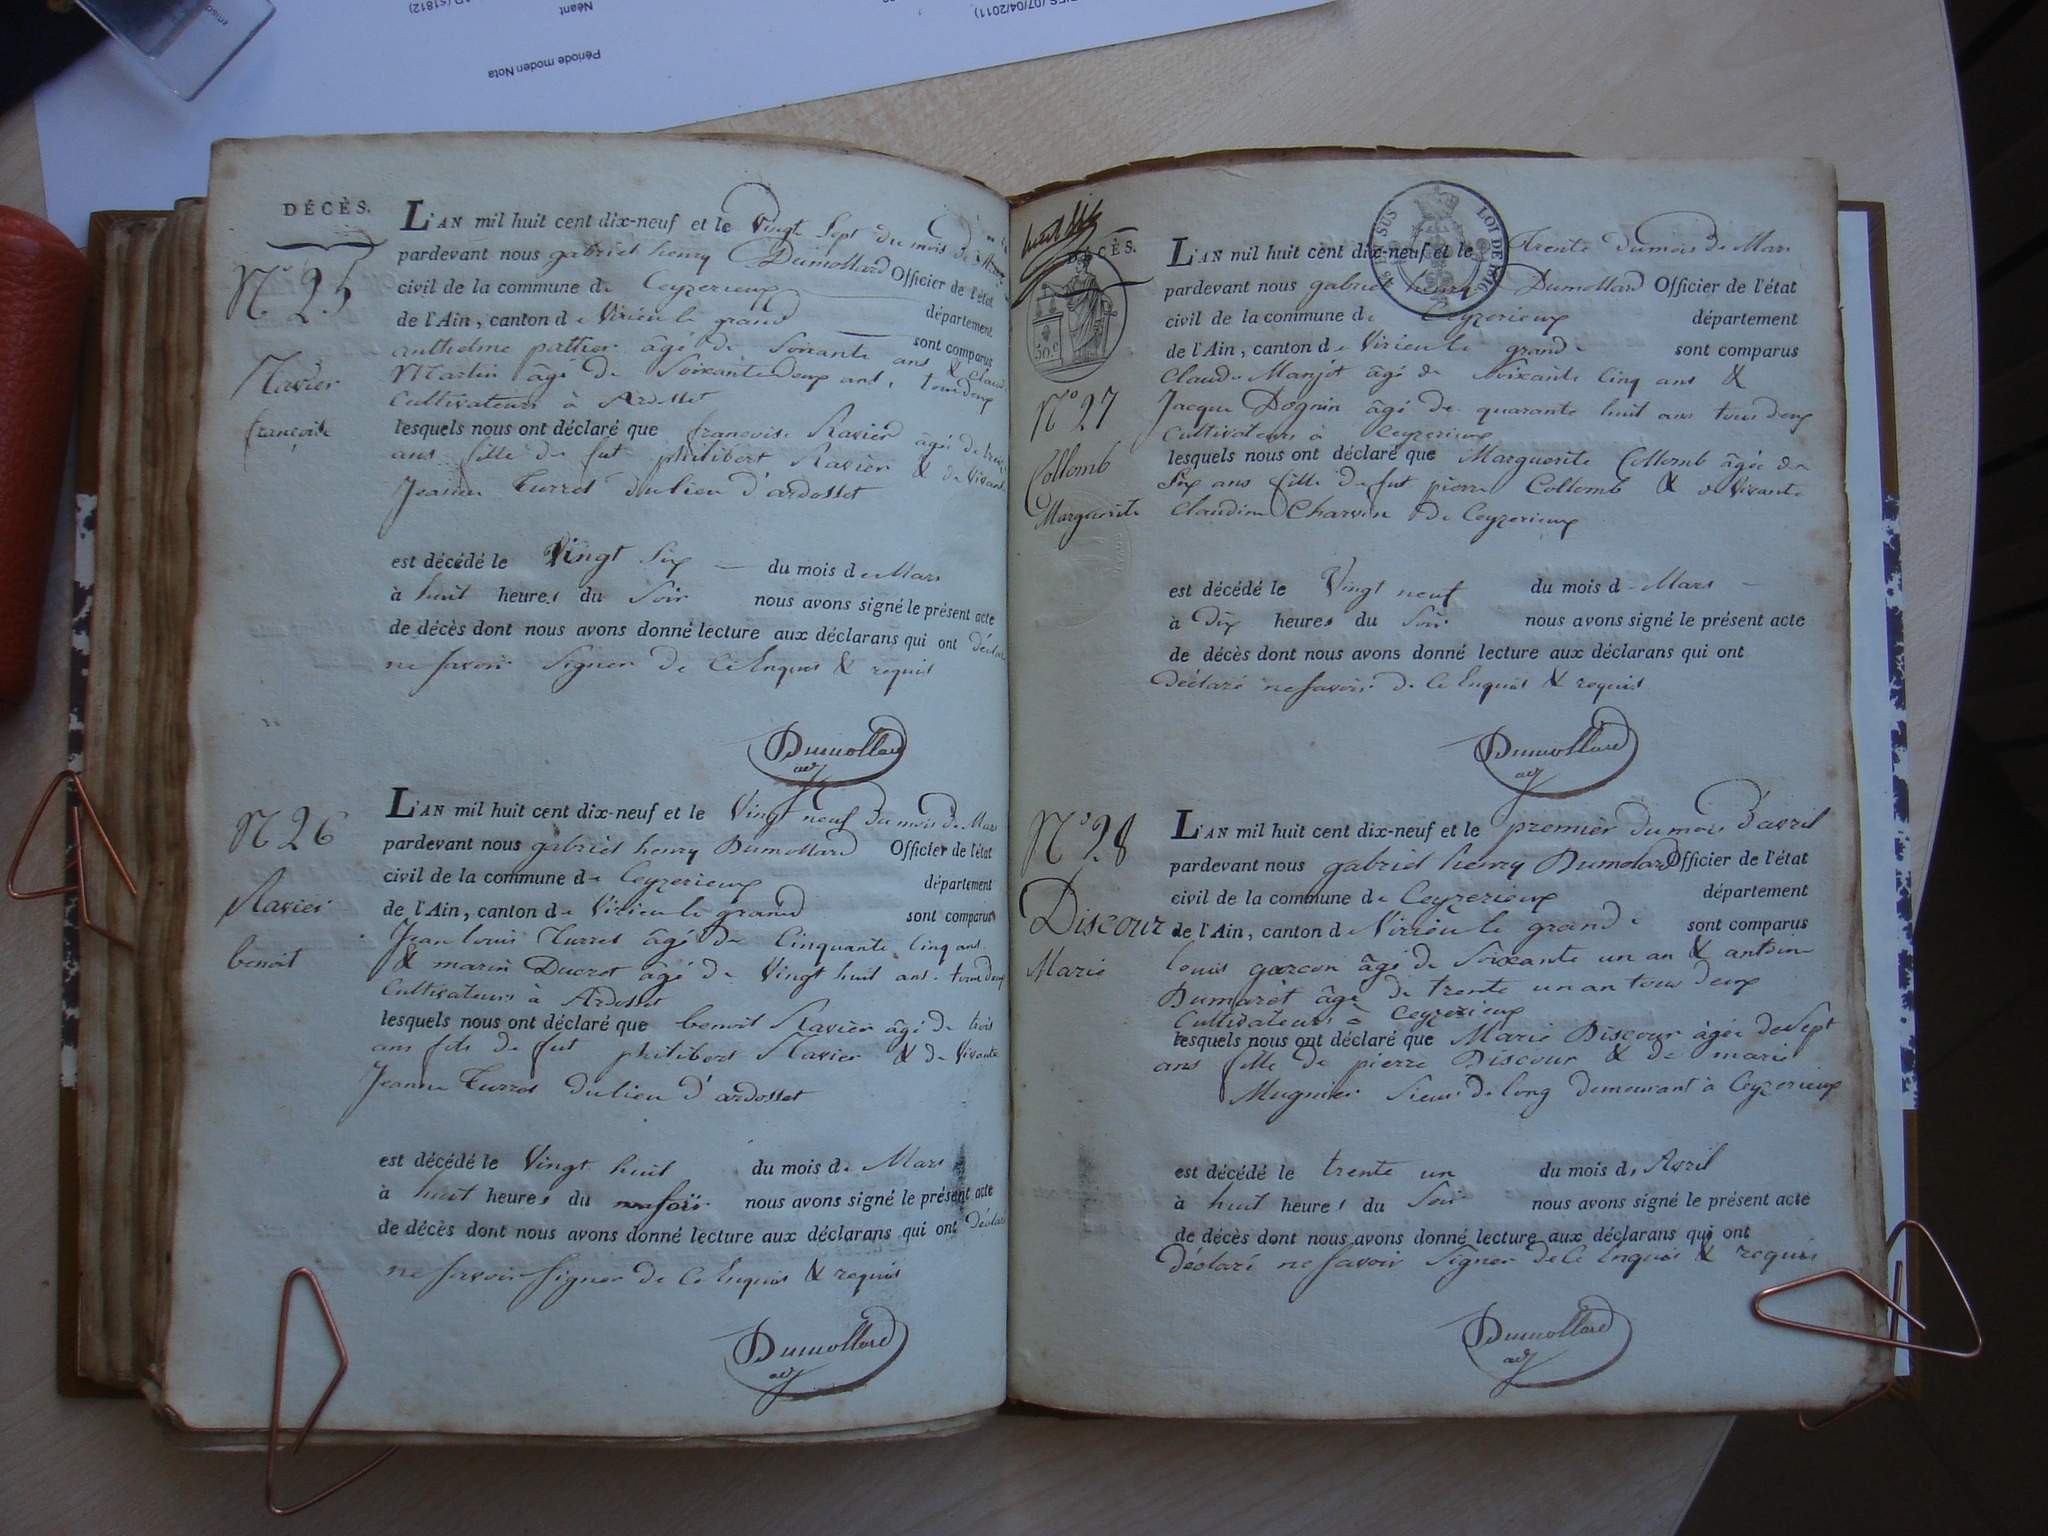 Période moden Nota
Néant
(07/04/2011)
DÉCÈS.
L'AN mil huit cent dix-neuf et le Vingt Sept du mois de Mars
pardevant nous gabriel henry Dumollard Officier de l'état
civil de la commune de Ceyzerieux département
de l'Ain, canton de Virieu le grand sont comparus
N.° 25
Ravier
françoise
anthelme pattier âgé de Soixante ans & Claude
Martin âgé de Soixante deux ans, tous deux
Cultivateurs à Ardosset
lesquels nous ont déclaré que francoise Ravier âgée de trois
ans fille de fut philibert Ravier & de Vivante
Jeanne Turrel du lieu d'ardosset
est décédé le Vingt Six du mois de Mars
à huit heures du Soir nous avons signé le présent acte
de décès dont nous avons donné lecture aux déclarans qui ont déclaré
ne savoir Signer de Ce Enquis & requis
Dumollard
adj
N.° 26
Ravier
benoit
L'AN mil huit cent dix-neuf et le Vingt neuf du mois de Mars
pardevant nous gabriel henry Dumollard Officier de l'état
civil de la commune de Ceyzerieux département
de l'Ain, canton de Virieu le grand sont comparus
Jean louis Turrel âgé de Cinquante Cinq ans
& marin Ducret âgé de Vingt huit ans. tous deux
Cultivateurs à Ardosset
lesquels nous ont déclaré que benoit Ravier âgé de trois
ans fils de fut philibert Ravier & de Vivante
Jeanne Turrel du lieu d'ardosset
est décédé le Vingt huit du mois de Mars
à huit heures du soir nous avons signé le présent acte
de décès dont nous avons donné lecture aux déclarans qui ont déclaré
ne savoir signer de Ce Enquis & requis
Dumollard
adj
DÉCÈS.
50.c
EN SUS
LOI DE 1816
L'AN mil huit cent dix-neuf et le Trente du mois de Mars
pardevant nous gabriel henry Dumollard Officier de l'état
civil de la commune de Ceyzerieux département
de l'Ain, canton de Virieu le grand sont comparus
N.° 27
Collomb
Marguerite
Claude Manjot âgé de Soixante Cinq ans &
Jacque Dognin âgé de quarante huit ans tous deux
Cultivateurs à Ceyzerieux
lesquels nous ont déclaré que Marguerite Collomb âgée de
Six ans fille de fut pierre Collomb & de Vivante
Claudine Charvin de Ceyzerieux
est décédé le Vingt neuf du mois de Mars
à Dix heures du Soir nous avons signé le présent acte
de décès dont nous avons donné lecture aux déclarans qui ont
Déclaré ne savoir de Ce Enquis & requis
Dumollard
adj
N.° 28
Discour
Marie
L'AN mil huit cent dix-neuf et le premier du mois d'avril
pardevant nous gabriel henry Dumolard Officier de l'état
civil de la commune de Ceyzerieux département
de l'Ain, canton d Virieu le grand sont comparus
louis garcon âgé de Soixante un an & antoine
Dumarèt âgé de trente un an tous deux
Cultivateurs à Ceyzerieux
lesquels nous ont déclaré que Marie Discour âgée de Sept
ans fille de pierre Discour & de marie
Mugnier Sieur de long demeurant à Ceyzerieux
est décédé le trente un du mois d, Avril
à huit heures du Soir nous avons signé le présent acte
de décès dont nous avons donné lecture aux déclarans qui ont
Déclaré ne savoir Signer de Ce Enquis & requis
Dumollard
adj